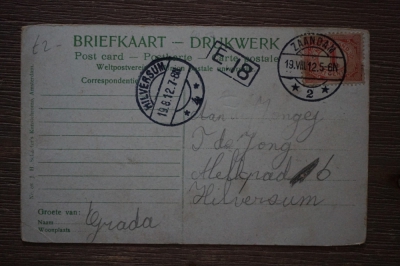 £2-
BRIEFKAART — DRUKWERK
Post card — Postkarte — Carte postale
Weltpostverein postale universelle
Correspondentie
HILVERSUM
19.8.12.7-8N
E 18
ZAANDAM
19.VIII.12.5-6N
2
Aan Jongej
T de Jong
Melkpad 6
Hilversum
Groete van:
Grada
Naam
Woonplaats